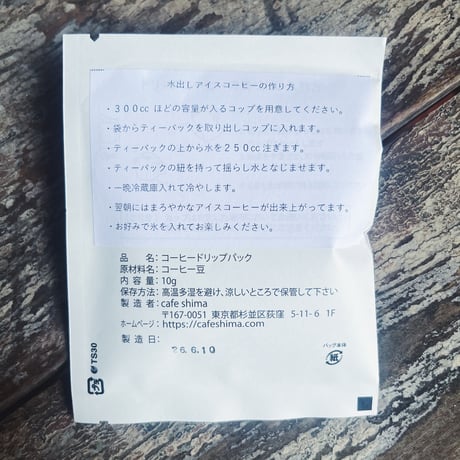 水出しアイスコーヒーの作り方
・300cc ほどの容量が入るコップを用意してください。
・袋からティーパックを取り出しコップに入れます。
・ティーパックの上から水を250cc注ぎます。
・ティーパックの紐を持って揺らし水となじませます。
・一晩冷蔵庫入れて冷やします。
・翌朝にはまろやかなアイスコーヒーが出来上がってます。
・お好みで氷を入れてお楽しみください。
品　名：コーヒードリップパック
原材料名：コーヒー豆
内 容 量：10g
保存方法：高温多湿を避け、涼しいところで保管して下さい
製 造 者：cafe shima
〒167-0051 東京都杉並区荻窪 5-11-6 1F
ホームページ：https://cafeshima.com/
製 造 日：
26.6.10
TS30
プラ
バッグ本体
紙